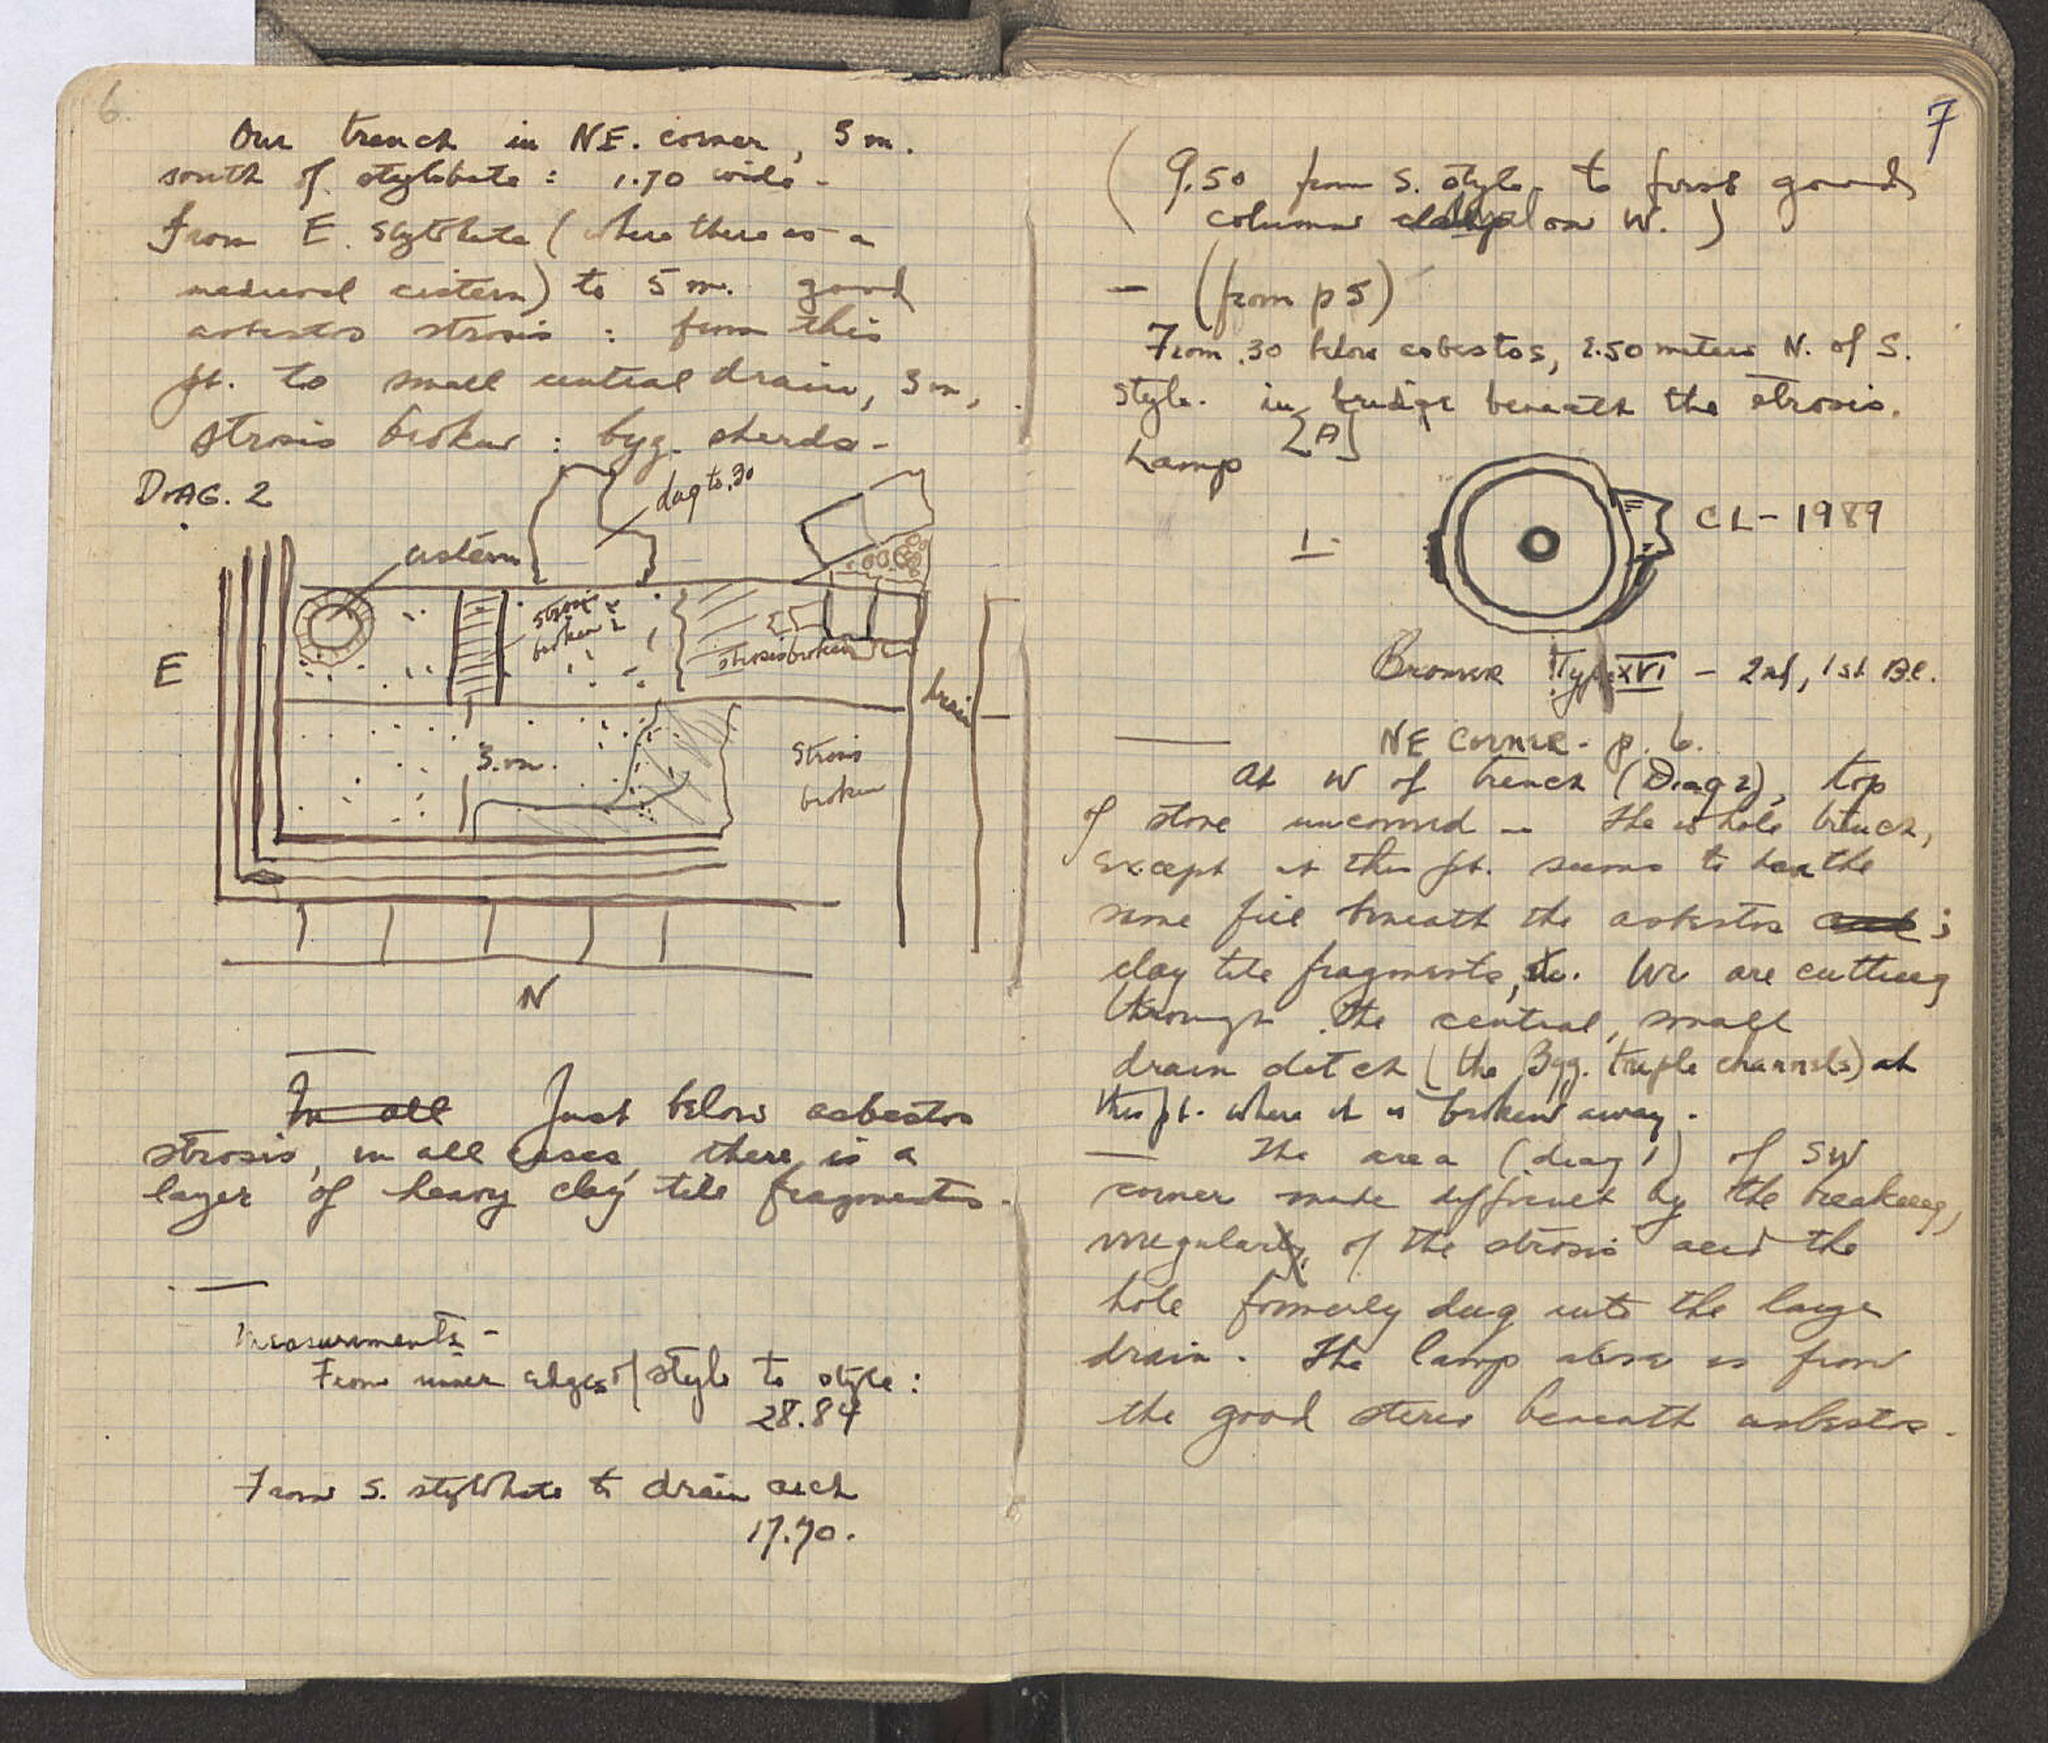 6.
Our trench in NE. corner, 3 m.
south of stylobate: 1.70 wide -
From E. stylobate (where there is a
medieval cistern) to 5 m. good
asbestos strosis : from this
pt. to small central drain, 3 m,
strosis broken : byz. sherds -
DIAG. 2
dug to .30
cistern
strosis
broken
strosis broken
E
drain
3. m.
Strosis
broken
N
In all Just below asbestos
strosis, in all cases, there is a
layer of heavy clay tile fragments.
Measurements -
From inner edges of style to style:
28.84
From S. stylobate to drain arch
17.70.
7
(9.50 from S. style. to first good
column on W.)
- (from p 5)
From .30 below asbestos, 2.50 meters N. of S.
style. in bridge beneath the strosis.
Lamp [A]
1.
CL - 1989
Broneer Type XVI - 2nd, 1st B.C.
NE Corner - p. 6.
At W of trench (Diag 2), top
of stone uncovered - The whole trench,
except at this pt. seems to have the
same fill beneath the asbestos ;
clay tile fragments, etc. We are cutting
through the central, small
drain ditch (the Byz. triple channels) at
this pt. where it is broken away.
The area (diag 1) of SW
corner made difficult by the breaking,
irregular, of the strosis and the
hole formerly dug into the large
drain. The lamp above is from
the good stereo beneath asbestos.